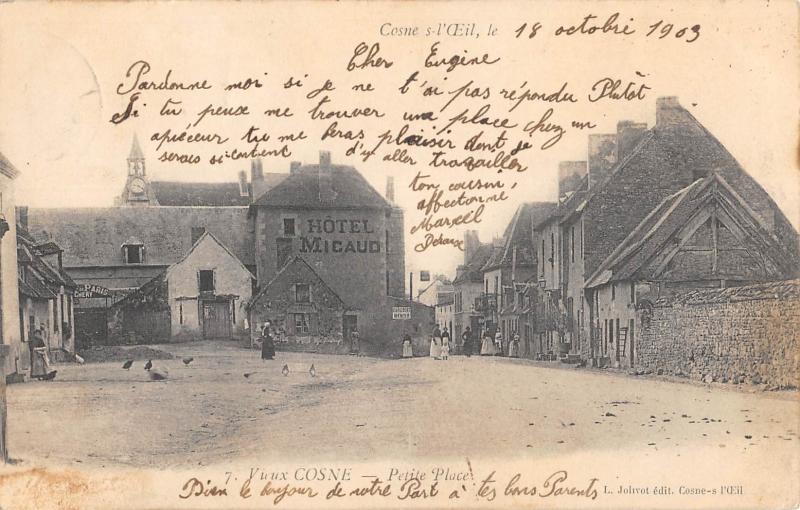 Cosne s-l'Œil, le 18 octobre 1903
Cher Eugène
Pardonne moi si je ne t'ai pas répondu Plutôt
Si tu peux me trouver une place chez un
apiéceur tu me feras plaisir dont je
serais si content d'y aller travailler
ton cousin,
affectionné
Marcel
HÔTEL
MICAUD
PARIS
7. Vieux COSNE — Petite Place
L. Jolivot édit. Cosne-s l'Œil
Bien le bonjour de notre Part à tes bons Parents